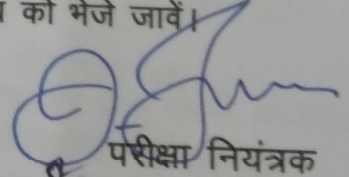 को भेजे जावें।
परीक्षा नियंत्रक